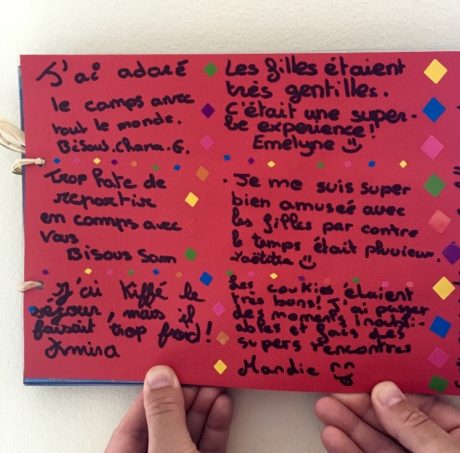 J'ai adoré
le camps avec
tout le monde.
Bisous. Chara. G.
Les filles étaient
très gentilles.
C'était une super-
be experience!
Emelyne
Trop hate de
repartire
en camps avec
vous
Bisous Sam
Je me suis super
bien amuseé avec
les filles par contre
le temps était pluvieux.
Laëtitia
J'ai Kiffé le
séjour, mais il
faisait trop froid!
Amira
Les cookies étaient
très bons! J'ai passer
des moments inoubli-
ables et fais des
supers rencontres
Mandie